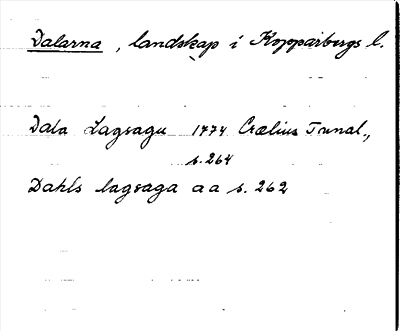 Dalarna, landskap i Kopparbergs l.
Dala Lagsagu 1774 Crælius Tunal.,
s. 264
Dahls lagsaga aa s. 262